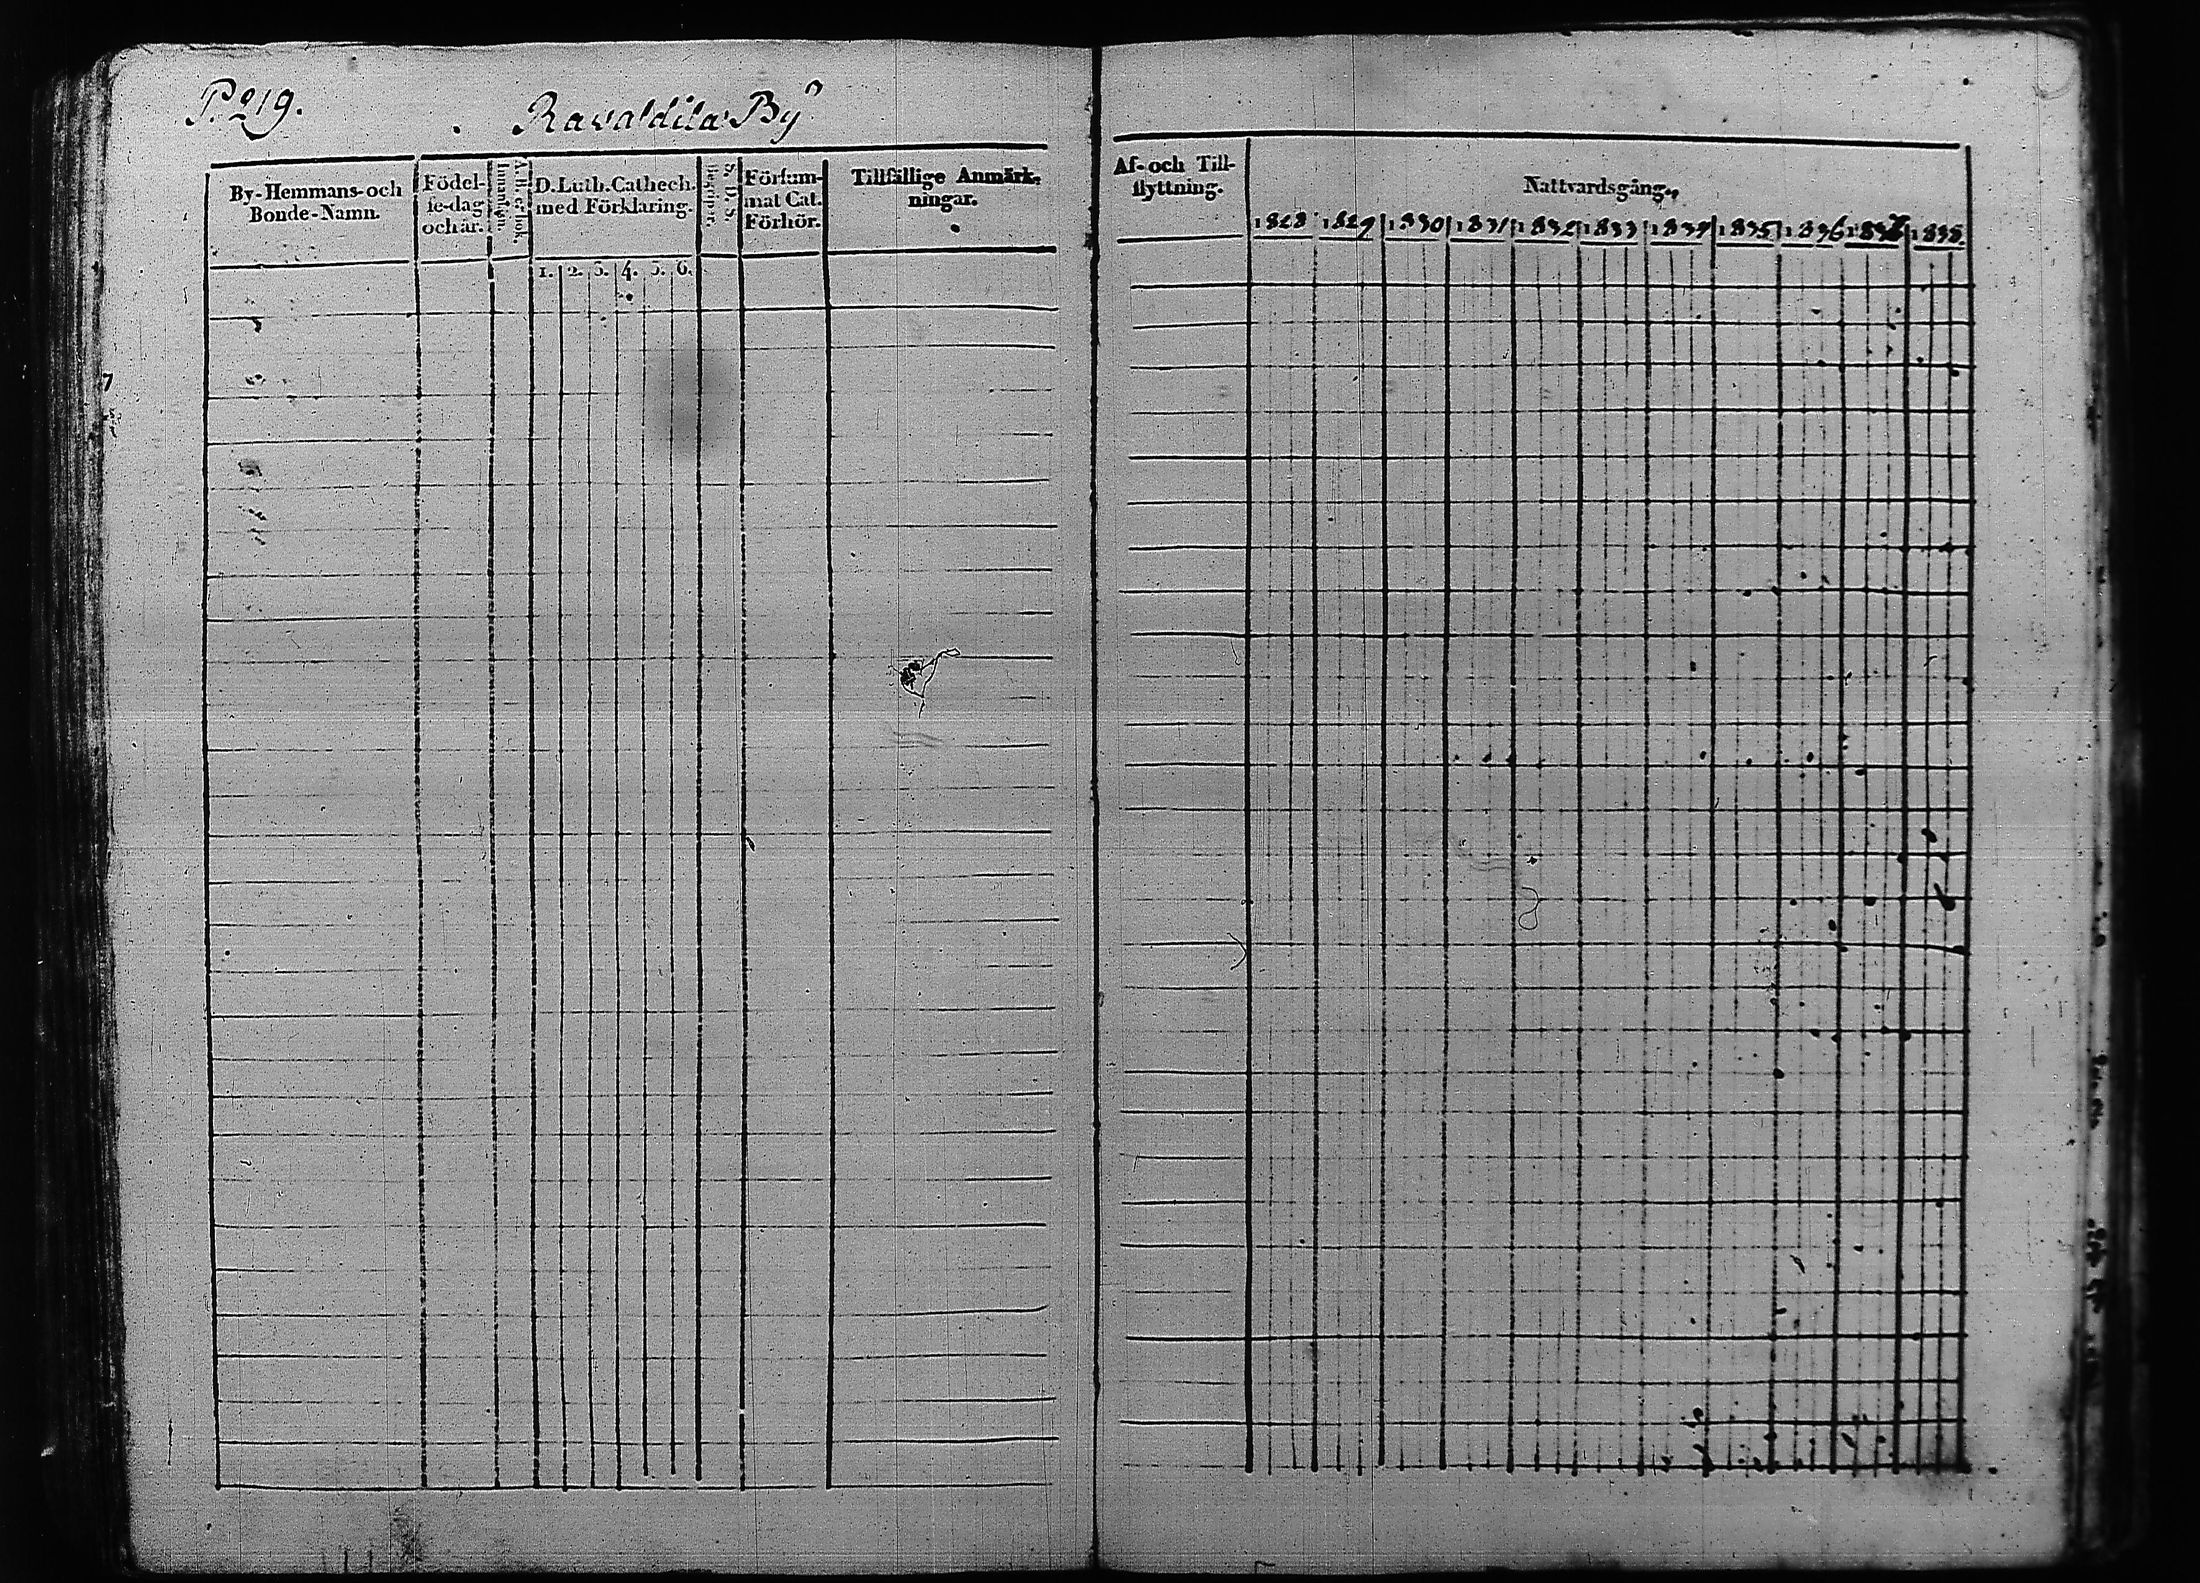 P. 219.
Ravaldila By
By-Hemmans-och
Bonde-Namn.
Födel-
se-dag
och år.
A.b.c.bok.
Innanläsn.
D. Luth. Cathech.
med Förklaring.
1. 2. 3. 4. 5. 6.
Försum-
mat Cat.
Förhör.
Tillfällige Anmärk-
ningar.
Af- och Till-
flyttning.
Nattvardsgång.
1828 1829 1830 1831 1832 1833 1834 1835 1836 1837 1838